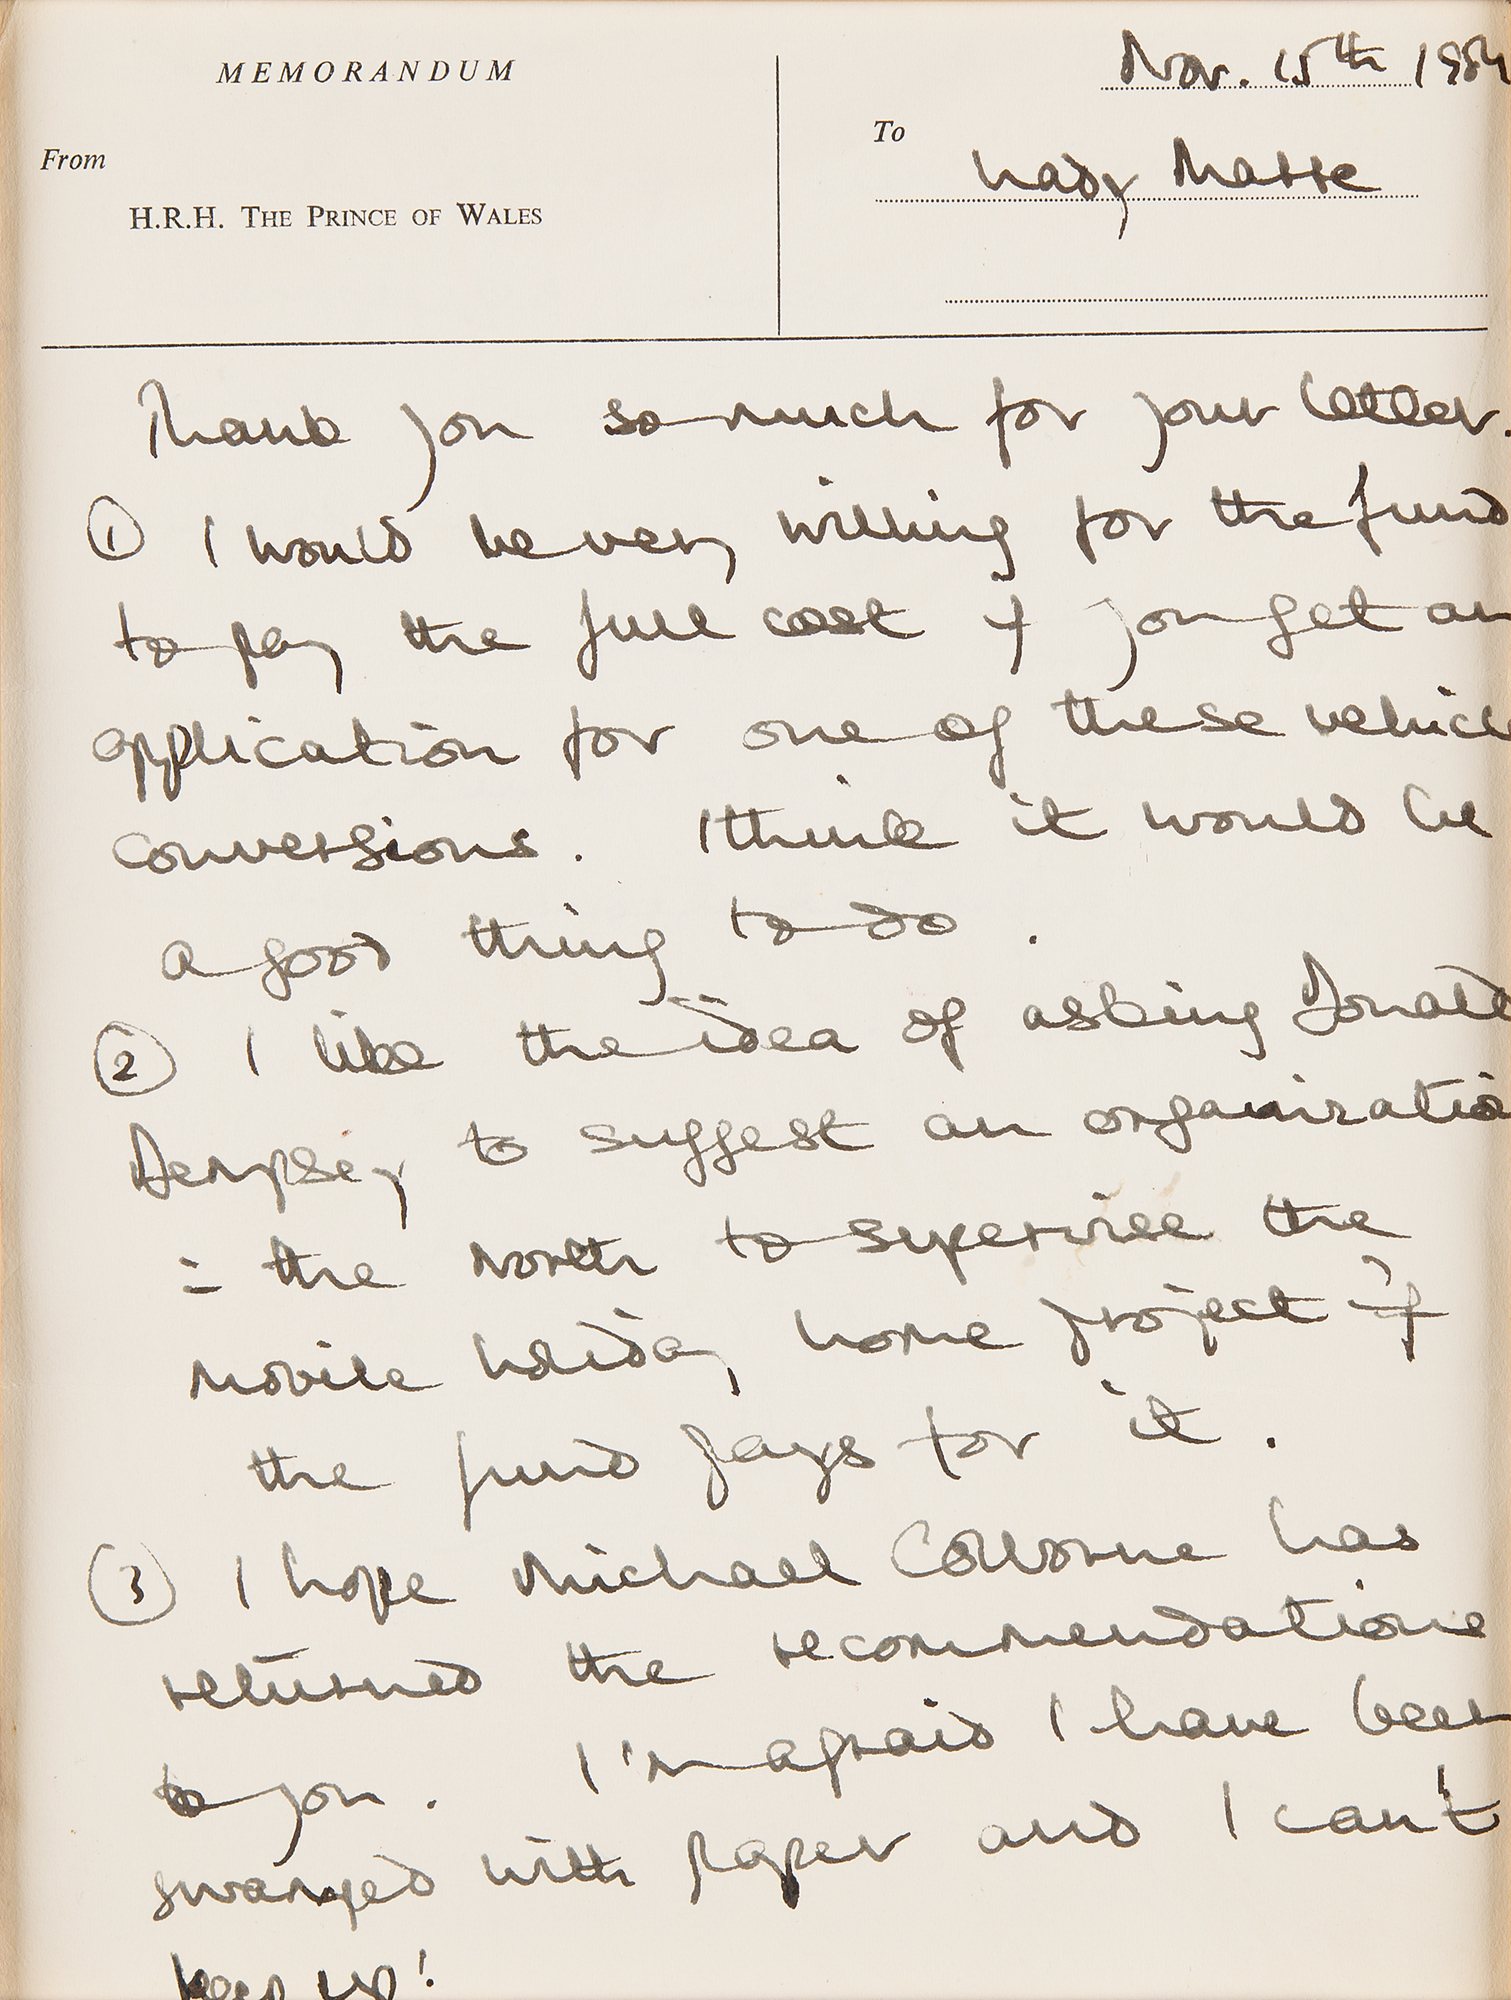 MEMORANDUM
Nov. 15th 1984
To
From
Lady Masse
H.R.H. THE PRINCE OF WALES
Thank you so much for your letter.
① I would be very willing for the fund
to pay the full cost if you get an
application for one of these vehicle
conversions. I think it would be
a good thing to do.
② I like the idea of asking Donald
Dempsey to suggest an organizatio
= the North to supervise the
mobile holiday home project if
the fund pays for it.
③ I hope Michael Colborne has
returned the recommendations
to you. I'm afraid I have been
swamped with paper and I can't
keep up!